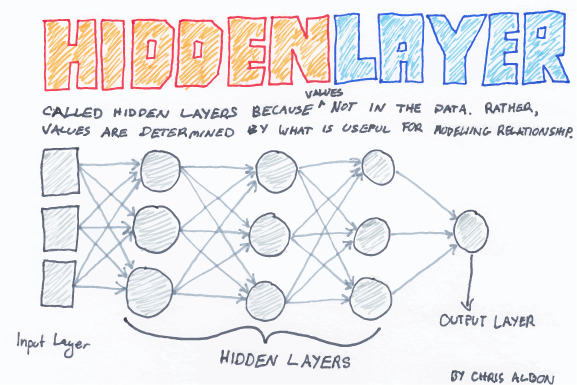 HIDDEN LAYER
CALLED HIDDEN LAYERS BECAUSE ^VALUES NOT IN THE DATA. RATHER,
VALUES ARE DETERMINED BY WHAT IS USEFUL FOR MODELING RELATIONSHIP.
Input Layer
HIDDEN LAYERS
OUTPUT LAYER
BY CHRIS ALBON